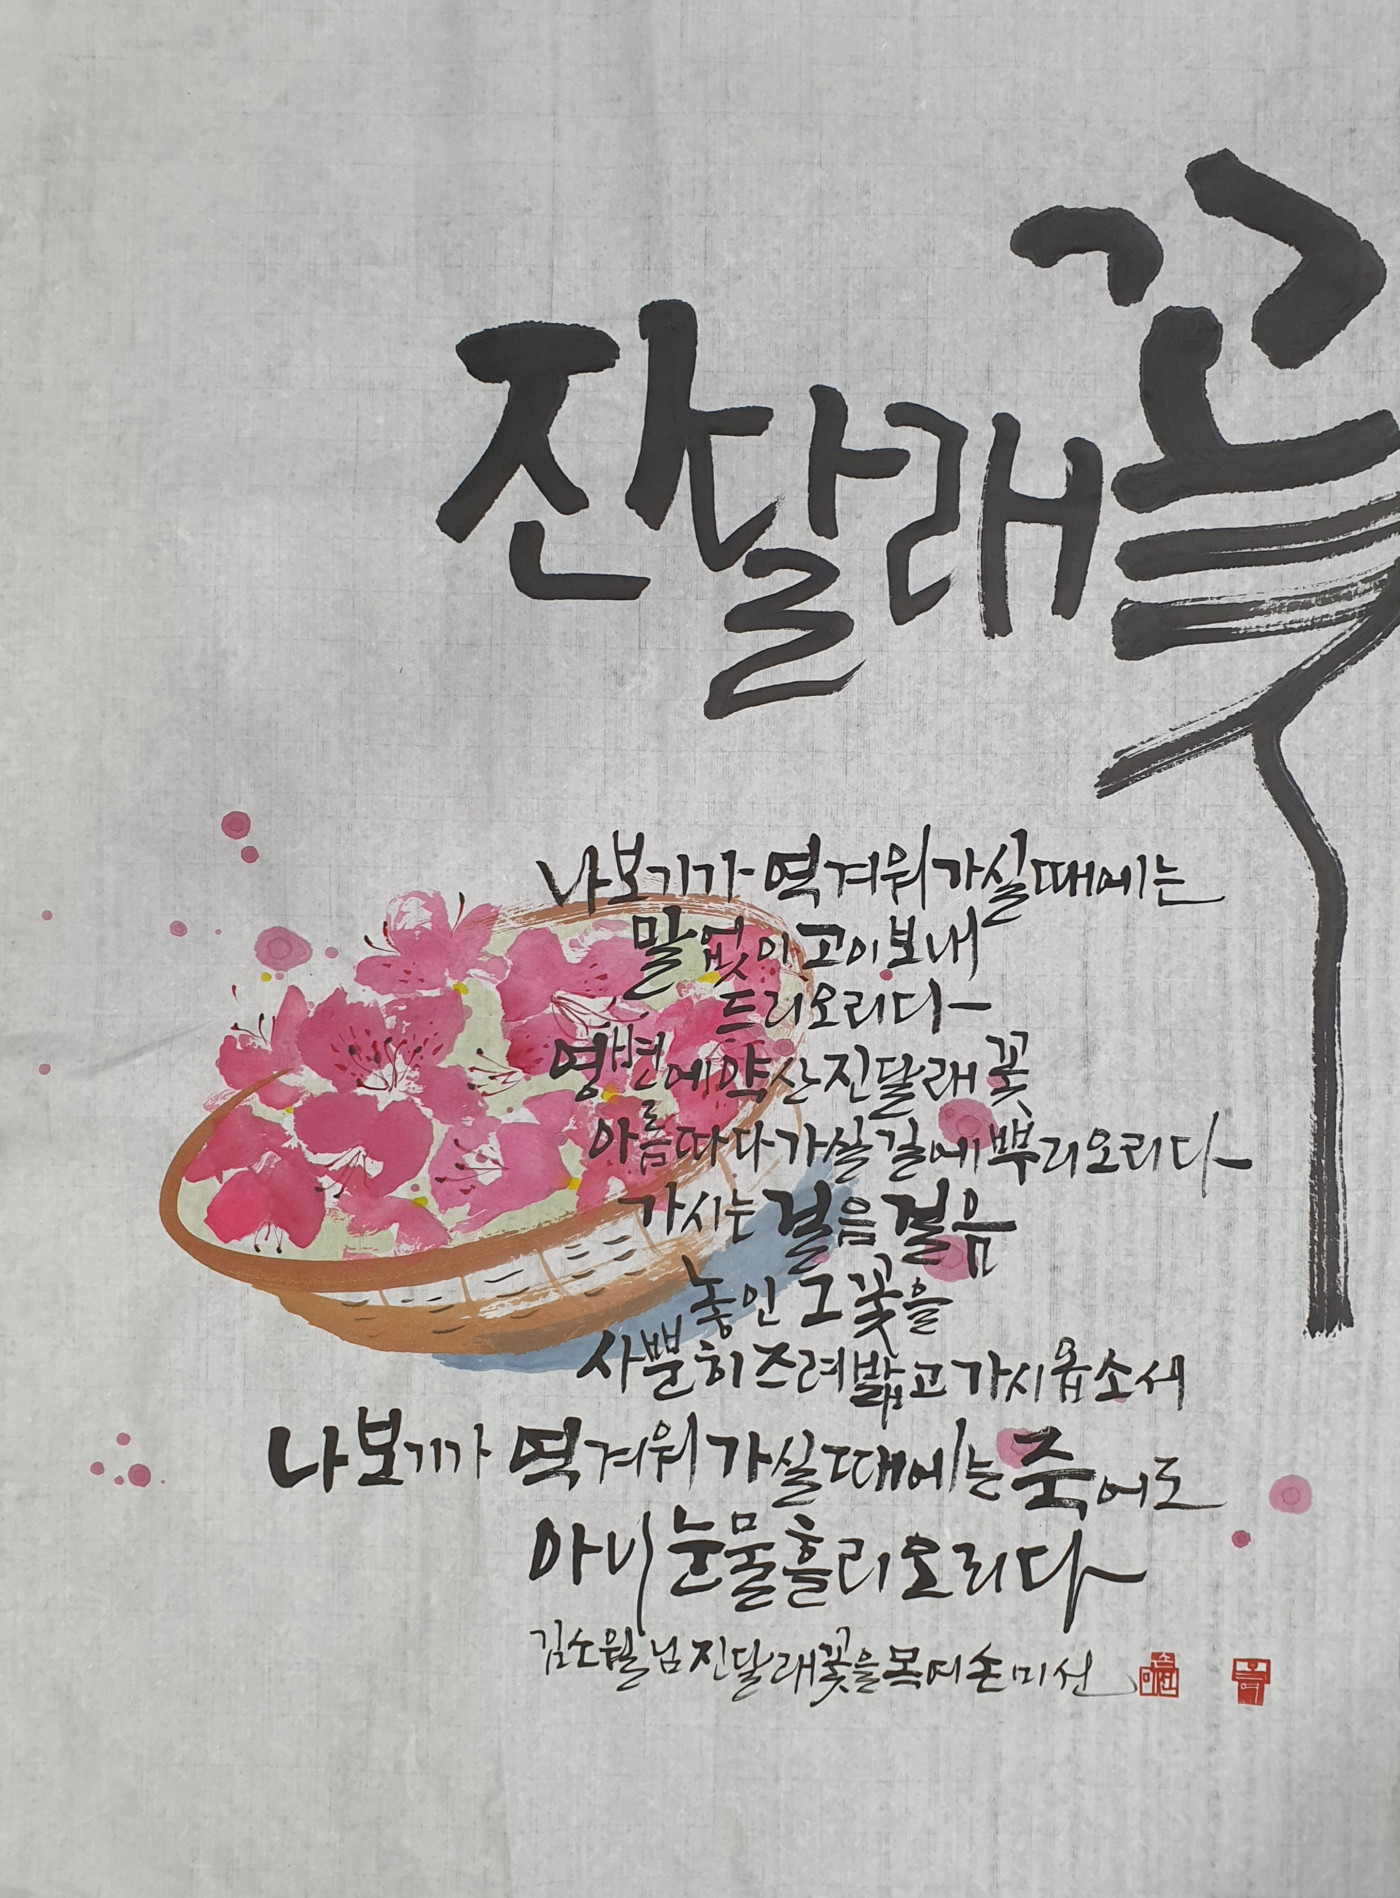 진달래꽃
나 보기가 역겨워 가실 때에는
말없이 고이 보내
드리오리다
영변에 약산 진달래꽃
아름따다 가실 길에 뿌리오리다
가시는 걸음 걸음
놓인 그 꽃을
사뿐히 즈려밟고 가시옵소서
나 보기가 역겨워 가실 때에는 죽어도
아니 눈물 흘리오리다
김소월님 진달래꽃을 목여 손미선